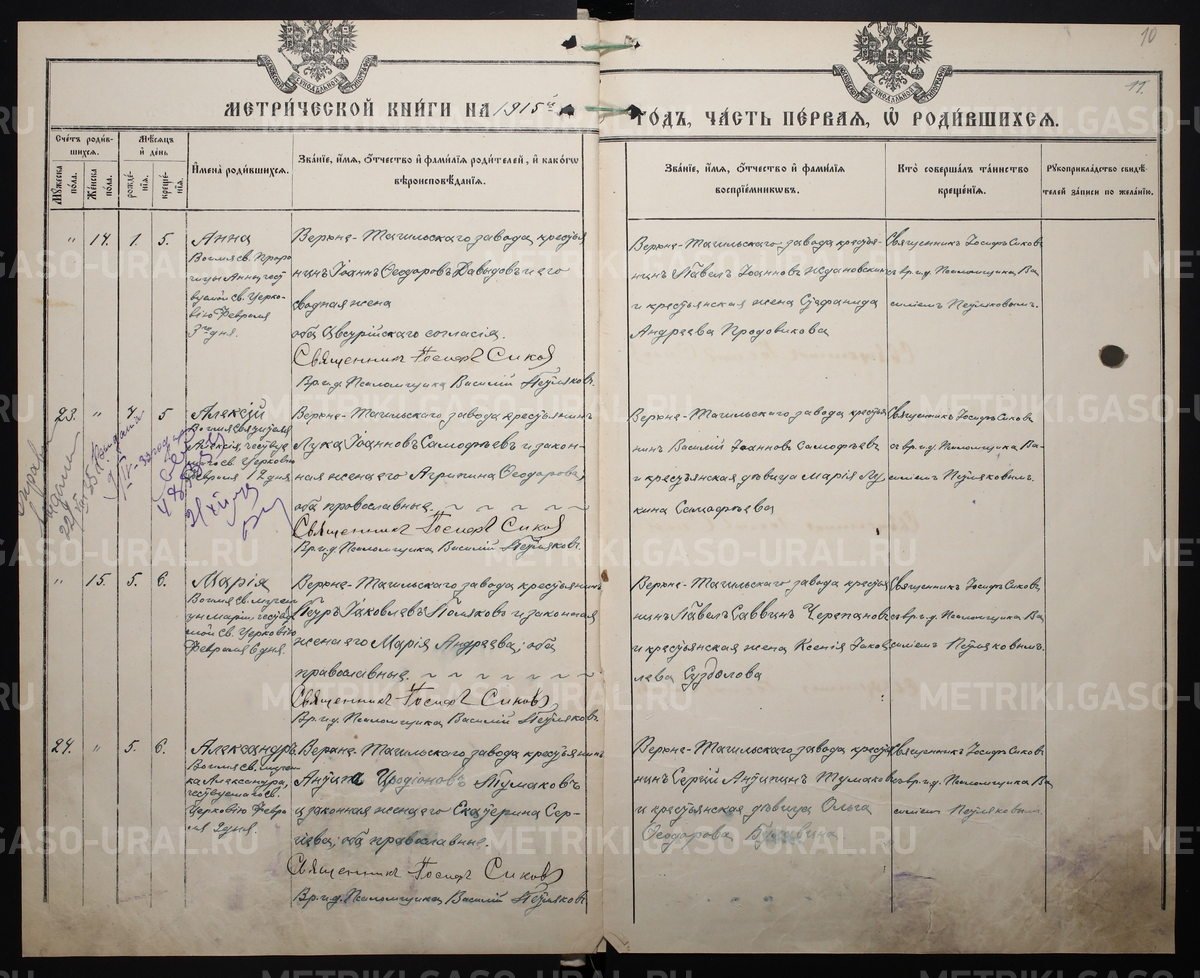 10
11.
МЕТРИ́ЧЕСКОЙ КНИ́ГИ НА 1915 й
ГО́ДЪ, ЧА́СТЬ ПЕ́РВАЯ, Ѡ҆ РОДИ́ВШИХСЯ.
Сче́тъ роди́вшихся.
Мꙋ́жеска по́ла.
Же́нска по́ла.
Мѣ́сяцъ и҆ де́нь
рожде́нїя.
креще́нїя.
И҆мена̀ роди́вшихся.
Зва́нїе, и҆́мя, ѻ҆́тчество и҆ фами́лїя роди́телей, и҆ како́гѡ
вѣроисповѣ́данїя.
Зва́нїе, и҆́мя, ѻ҆́тчество и҆ фами́лїя
воспрїе́мникѡвъ.
Кто̀ соверша́лъ та́инство
креще́нїя.
Рꙋкоприкла́дство свидѣ́-
телей за́писи по жела́нїю.
" 14. 1. 5.
Анна
Во имя св. Проро
чицы Анны, чест
вуемой св. Церко-
вію Февраля
3го дня.
Верхне-Тагильскаго завода крестья
нинъ Іоаннъ Ѳеодоровъ Давыдовъ и его
сводная жена
оба Австрійскаго согласія.
Священникъ Іосифъ Сиковъ
Вр. и. д. Псаломщика Василій
Верхне-Тагильскаго завода крестья-
нинъ Павелъ Іоанновъ Ждановскихъ
и крестьянская жена Стефанида
Андреева Продовикова
Священникъ Іосифъ Сиковъ
съ вр. и. д. Псаломщика Ва
силіемъ
23. " 4. 5
Алексій
Во имя Святителя
Алексія, чествуе
маго св. Церковію
Февраля 12 дня
Верхне-Тагильскаго завода крестьянинъ
Лука Іоанновъ Самофѣевъ и закон-
ная жена его Агрипина Ѳеодорова,
оба православные.
Священникъ Іосифъ Сиковъ
Вр. и. д. Псаломщика Василій
Верхне-Тагильскаго завода крестья
нинъ Василій Іоанновъ Самофѣевъ
и крестьянская дѣвица Марія Лу
кина Самофѣева
Священникъ Іосифъ Сиковъ
съ вр. и. д. Псаломщика Ва-
силіемъ
" 15. 5. 6.
Марія
Во имя св. мучен
цы Маріи, чествуе
мой св. Церковію
Февраля 6 дня.
Верхне-Тагильскаго завода крестьянинъ
Петръ Іаковлевъ Поляковъ и законная
жена его Марія Андреева; оба
православные.
Священникъ Іосифъ Сиковъ
Вр. и. д. Псаломщика Василій
Верхне-Тагильскаго завода крестья
нинъ Павелъ Саввинъ Черепановъ
и крестьянская жена Ксенія Іаков
лева Суздолова
Священникъ Іосифъ Сиковъ
съ вр. и. д. Псаломщика Ва
силіемъ
24. " 5. 6.
Александръ
Во имя св. мучен
ка Александра,
чествуемаго св.
Церковію Февра
ля 2 дня.
Верхне-Тагильскаго завода крестьянинъ
Антипа Иродіоновъ Тумаковъ
и законная жена его Екатерина Сер-
гіева; оба православные.
Священникъ Іосифъ Сиковъ
Вр. и. д. Псаломщика Василій
Верхне-Тагильскаго завода крестья
нинъ Сергій Антипинъ Тумаковъ
и крестьянская дѣвица Ольга
Ѳеодорова
Священникъ Іосифъ Сиковъ
съ вр. и. д. Псаломщика Ва
силіемъ
METRIKI.GASO-URAL.RU